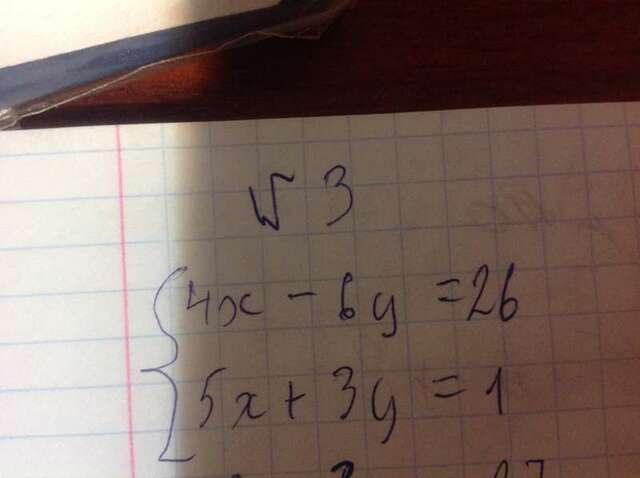 № 3
{4x - 6y = 26
5x + 3y = 1